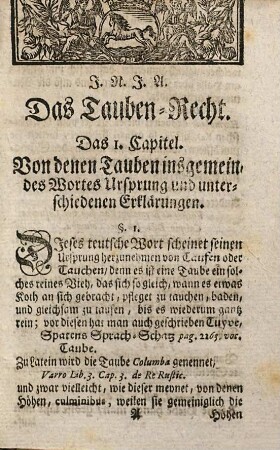 J. N. J. A.
Das Tauben-Recht.
Das 1. Capitel.
Von denen Tauben insgemein,
des Wortes Ursprung und unter-
schiedenen Erklärungen.
§. 1.
Dieses teutsche Wort scheinet seinen
Ursprung herzunehmen von Taufen oder
Tauchen, denn es ist eine Taube ein sol-
ches reines Vieh, das sich so gleich, wann es etwas
Koth an sich gebracht, pfleget zu tauchen, baden,
und gleichsam zu taufen, bis es wiederum gantz
rein; vor diesen hat man auch geschrieben Tuyve,
Spatens Sprach-Schatz pag. 2265. voc.
Taube.
Zu Latein wird die Taube Columba genennet,
Varro Lib. 3. Cap. 3. de Re Rustic.
und zwar vielleicht, wie dieser meynet, von denen
Höhen, culminibus, weilen sie gemeiniglich die
A Höhen